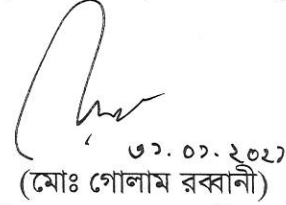 ৩১.০১.২০২১
(মোঃ গোলাম রব্বানী)